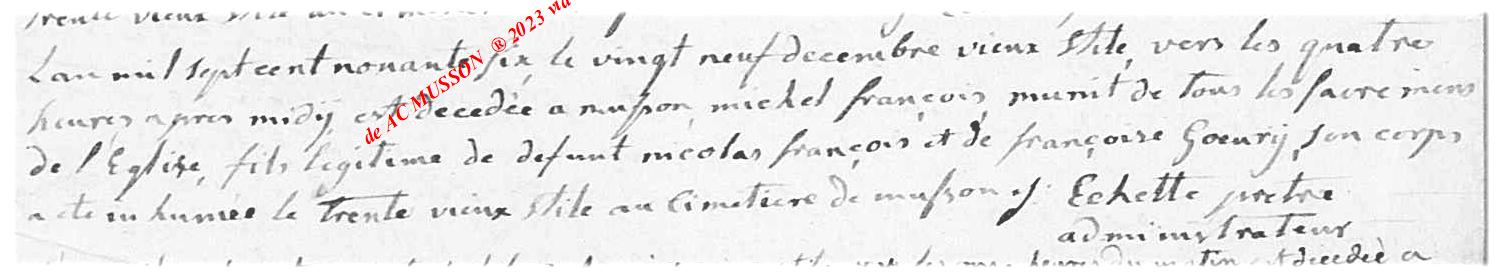 trente vieux stile
Lan mil sept cent nonante six, le vingt neuf decembre vieux stile, vers les quatre
heures apres midy, est decedée a musson, michel françois, munit de tous les sacremens
de l'Eglise, fils legitime de defunt nicolas françois et de françoise Goeury, son corps
a ete inhumée le trente vieux stile au cimetiere de musson Echette pretre
administrateur
heures du matin est decedée a
de ACMUSSON ® 2023 via